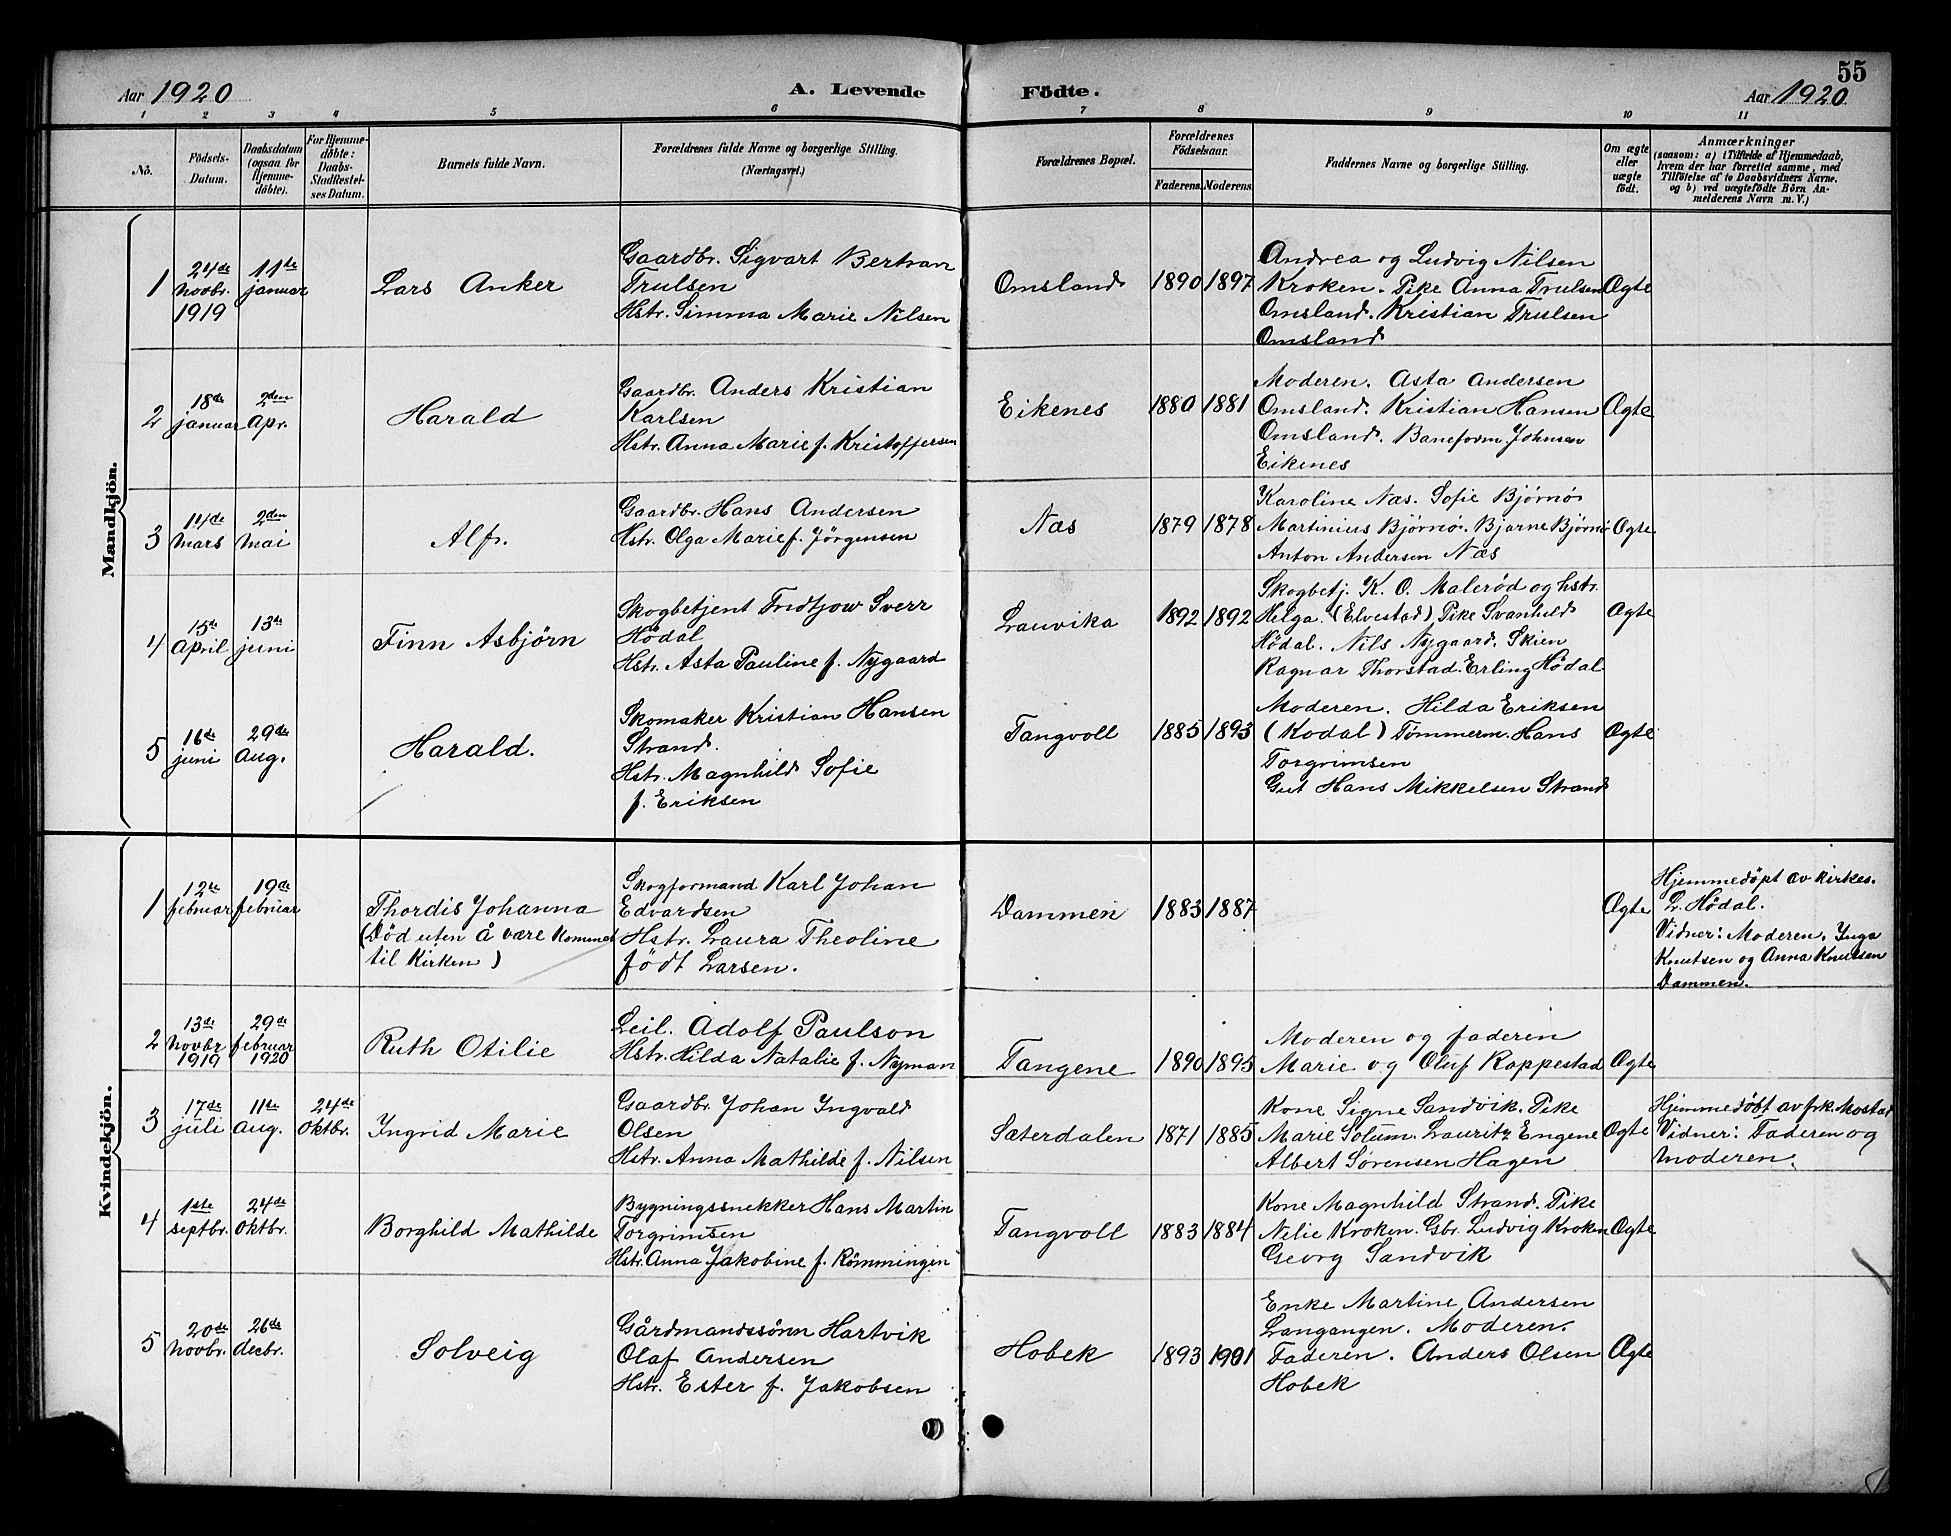 55
Aar 1920 A. Levende Födte. Aar 1920
1 2 3 4 5 6 7 8 9 10 11
No.
Födsels-
Datum.
Daabsdatum
(ogsaa for
Hjemme-
döbte).
For Hjemme-
döbte:
Daabs-
Stadfestel-
ses Datum.
Barnets fulde Navn.
Forældrenes fulde Navne og borgerlige Stilling.
(Næringsvei.)
Forældrenes Bopæl.
Forældrenes
Födselsaar.
Faderens. Moderens.
Faddernes Navne og borgerlige Stilling.
Om ægte
eller
uægte
födt.
Anmærkninger
(saasom: a) i Tilfælde af Hjemmedaab,
hvem der har forrettet samme, med
Tilföielse af to Daabsvidners Navne.
og b) ved uægtefödte Börn An-
melderens Navn m. V.)
Mandkjön.
1
24de
Novbr.
1919
11te
januar
Lars Anker
Gaardbr. Sigvart Bertran
Trulsen
Hstr. Simma Marie Nilsen
Omsland
1890 1897
Andrea og Ludvig Nilsen
Kroken. Pike Anna Trulsen
Omsland. Kristian Trulsen
Omsland
Ægte
2
18de
januar
2den
Apr.
Harald
Gaardbr. Anders Kristian
Karlsen
Hstr. Anna Marie f. Kristoffersen
Eikenes
1880 1881
Moderen. Asta Andersen
Omsland. Kristian Hansen
Omsland. Baneform Johnsen
Eikenes
Ægte
3
14de
Mars
2den
Mai
Alf.
Gaardbr. Hans Andersen
Hstr. Olga Marie f. Jörgensen
Næs
1879 1878
Karoline Næs. Sofie Bjørnø
Martinius Bjørnø. Bjarne Bjørnø
Anton Andersen Næs
Ægte
4
15de
April
13de
juni
Finn Asbjörn
Skogbetjent Fridtjow Sverr
Hödal
Hstr. Asta Pauline f. Nygaard
Lauvika
1892 1892
Skogbetj. K. O. Malerød og hstr.
Helga. (Elvestad) Pike Svanhild
Hödal. Nils Nygaard. Skien
Ragnar Thorstad. Erling Hödal
Ægte
5
16de
juni
29de
Aug.
Harald.
Skomaker Kristian Hansen
Strand.
Hstr. Magnhild Sofie
f. Eriksen
Tangvoll
1885 1893
Moderen. Hilda Eriksen
(Kodal) Tømmerm. Hans
Torgrimsen
Gut Hans Mikkelsen Strand
Ægte
Kvindekjön.
1
12te
februar
19de
februar
Thordis Johanna
(Död uten å være kommet
til Kirken)
Skogformand Karl Johan
Edvardsen
Hstr. Laura Theoline
født Larsen.
Dammen
1883 1887
Ægte
Hjemmedøpt av Kirkes.
L. Hödal.
Vidner: Moderen. Inga
Knutsen og Anna Knutsen
Dammen.
2
13de
Novbr
1919
29de
februar
1920
Ruth Otilie
Leil. Adolf Paulson
Hstr. Hilda Natalie f. Nyman
Tangene
1890 1895
Moderen og faderen
Marie og Oluf Koppestad
Ægte
3
17de
juli
11te
Aug.
24de
Oktbr.
Ingrid Marie
Gaardbr. Johan Ingvald
Olsen
Hstr. Anna Mathilde f. Nilsen
Sæterdalen
1871 1885
Kone Signe Sandvik. Pike
Marie Solum. Lauritz Engene
Albert Sørensen Hagen
Ægte
Hjemmedöbt av frk. Mostad
Vidner: Faderen og
Moderen.
4
1ste
septbr.
24de
Oktbr.
Borghild Mathilde
Bygningssnekker Hans Martin
Torgrimsen
Hstr. Anna Jakobine f. Römmingen
Tangvoll
1883 1884
Kone Magnhild Strand. Pike
Nelie Kroken. Gbr. Ludvig Kroken
Georg Sandvik
Ægte
5
20de
Novbr.
26de
decbr.
Solveig
Gårdmandssönn Hartvik
Olaf Andersen
Hstr. Ester f. Jakobsen
Hobek
1893 1901
Enke Martine Andersen
Langangen. Moderen.
Faderen. Anders Olsen
Hobek
Ægte